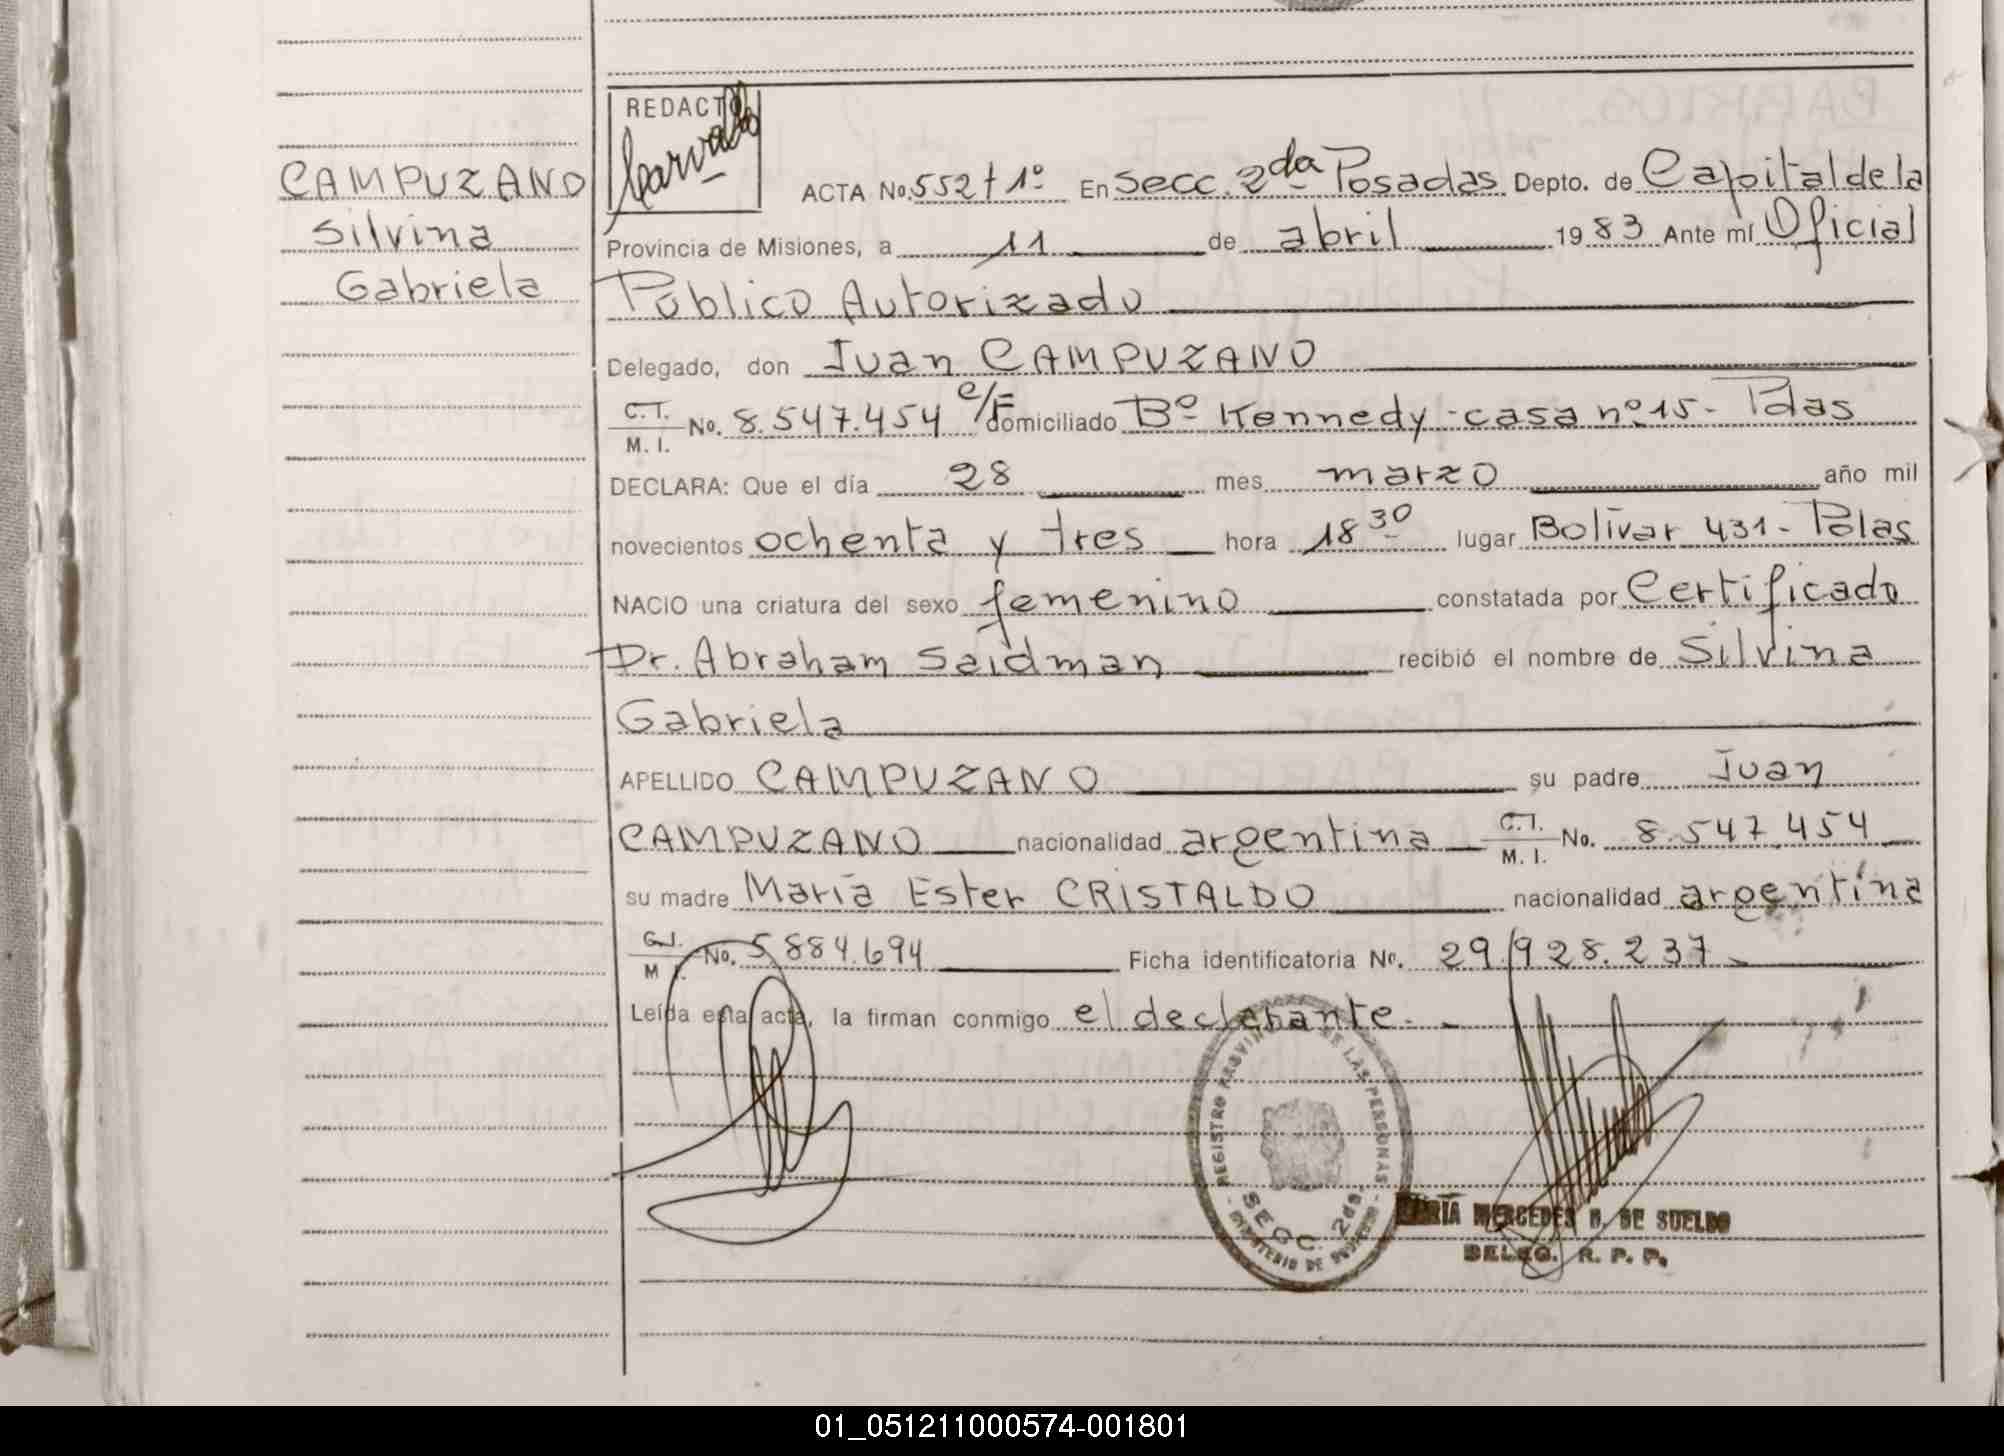 CAMPUZANO
Silvina
Gabriela
REDACTO
ACTA No. 552 t 1º En Secc. 2da Posadas Depto. de Capital de la
Provincia de Misiones, a 11 de abril 1983 Ante mí Oficial
Público Autorizado
Delegado, don Juan CAMPUZANO
C.I. M. I. No. 8.547.454 c/F domiciliado Bº Kennedy - casa nº 15 - Pdas
DECLARA: Que el día 28 mes marzo año mil
novecientos ochenta y tres hora 18 30 lugar Bolívar 431 - Pdas
NACIO una criatura del sexo femenino constatada por Certificado
Dr. Abraham Saidman recibió el nombre de Silvina
Gabriela
APELLIDO CAMPUZANO su padre Juan
CAMPUZANO nacionalidad argentina C.I. M. I. No. 8.547.454
su madre María Ester CRISTALDO nacionalidad argentina
C.I. M. I. No. 5.884.694 Ficha identificatoria No. 29.928.237
Leída esta acta, la firman conmigo el declarante. -
REGISTRO PROVINCIAL DE LAS PERSONAS
SECC. 2da
MINISTERIO DE GOBIERNO
MARÍA MERCEDES B. DE SUELDO
DELEG. R. P. P.
01_051211000574-001801